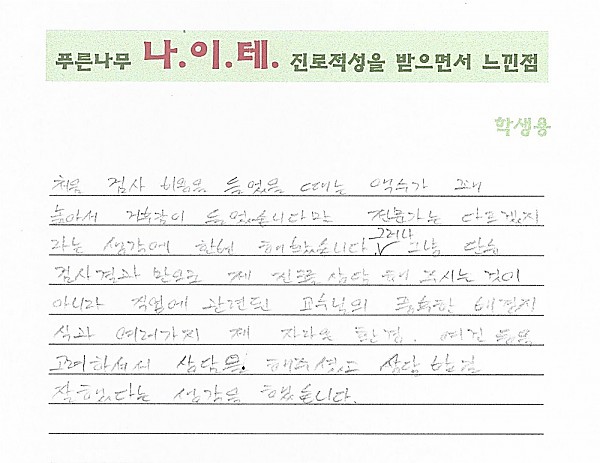 푸른나무 나.이.테. 진로적성을 받으면서 느낀점
학생용
처음 검사 비용을 들었을 때는 액수가 꽤
높아서 거부감이 들었습니다만 전문가는 다르겠지
라는 생각에 한번 해봤습니다. 그러나 그냥 단순
검사결과 만으로 제 진로 상담 해 주시는 것이
아니라 직업에 관련된 교수님의 풍족한 배경지
식과 여러가지 제 자라온 환경, 여건 등을
고려하셔서 상담을 해주셨고 상담 받길
잘했다는 생각을 했습니다.